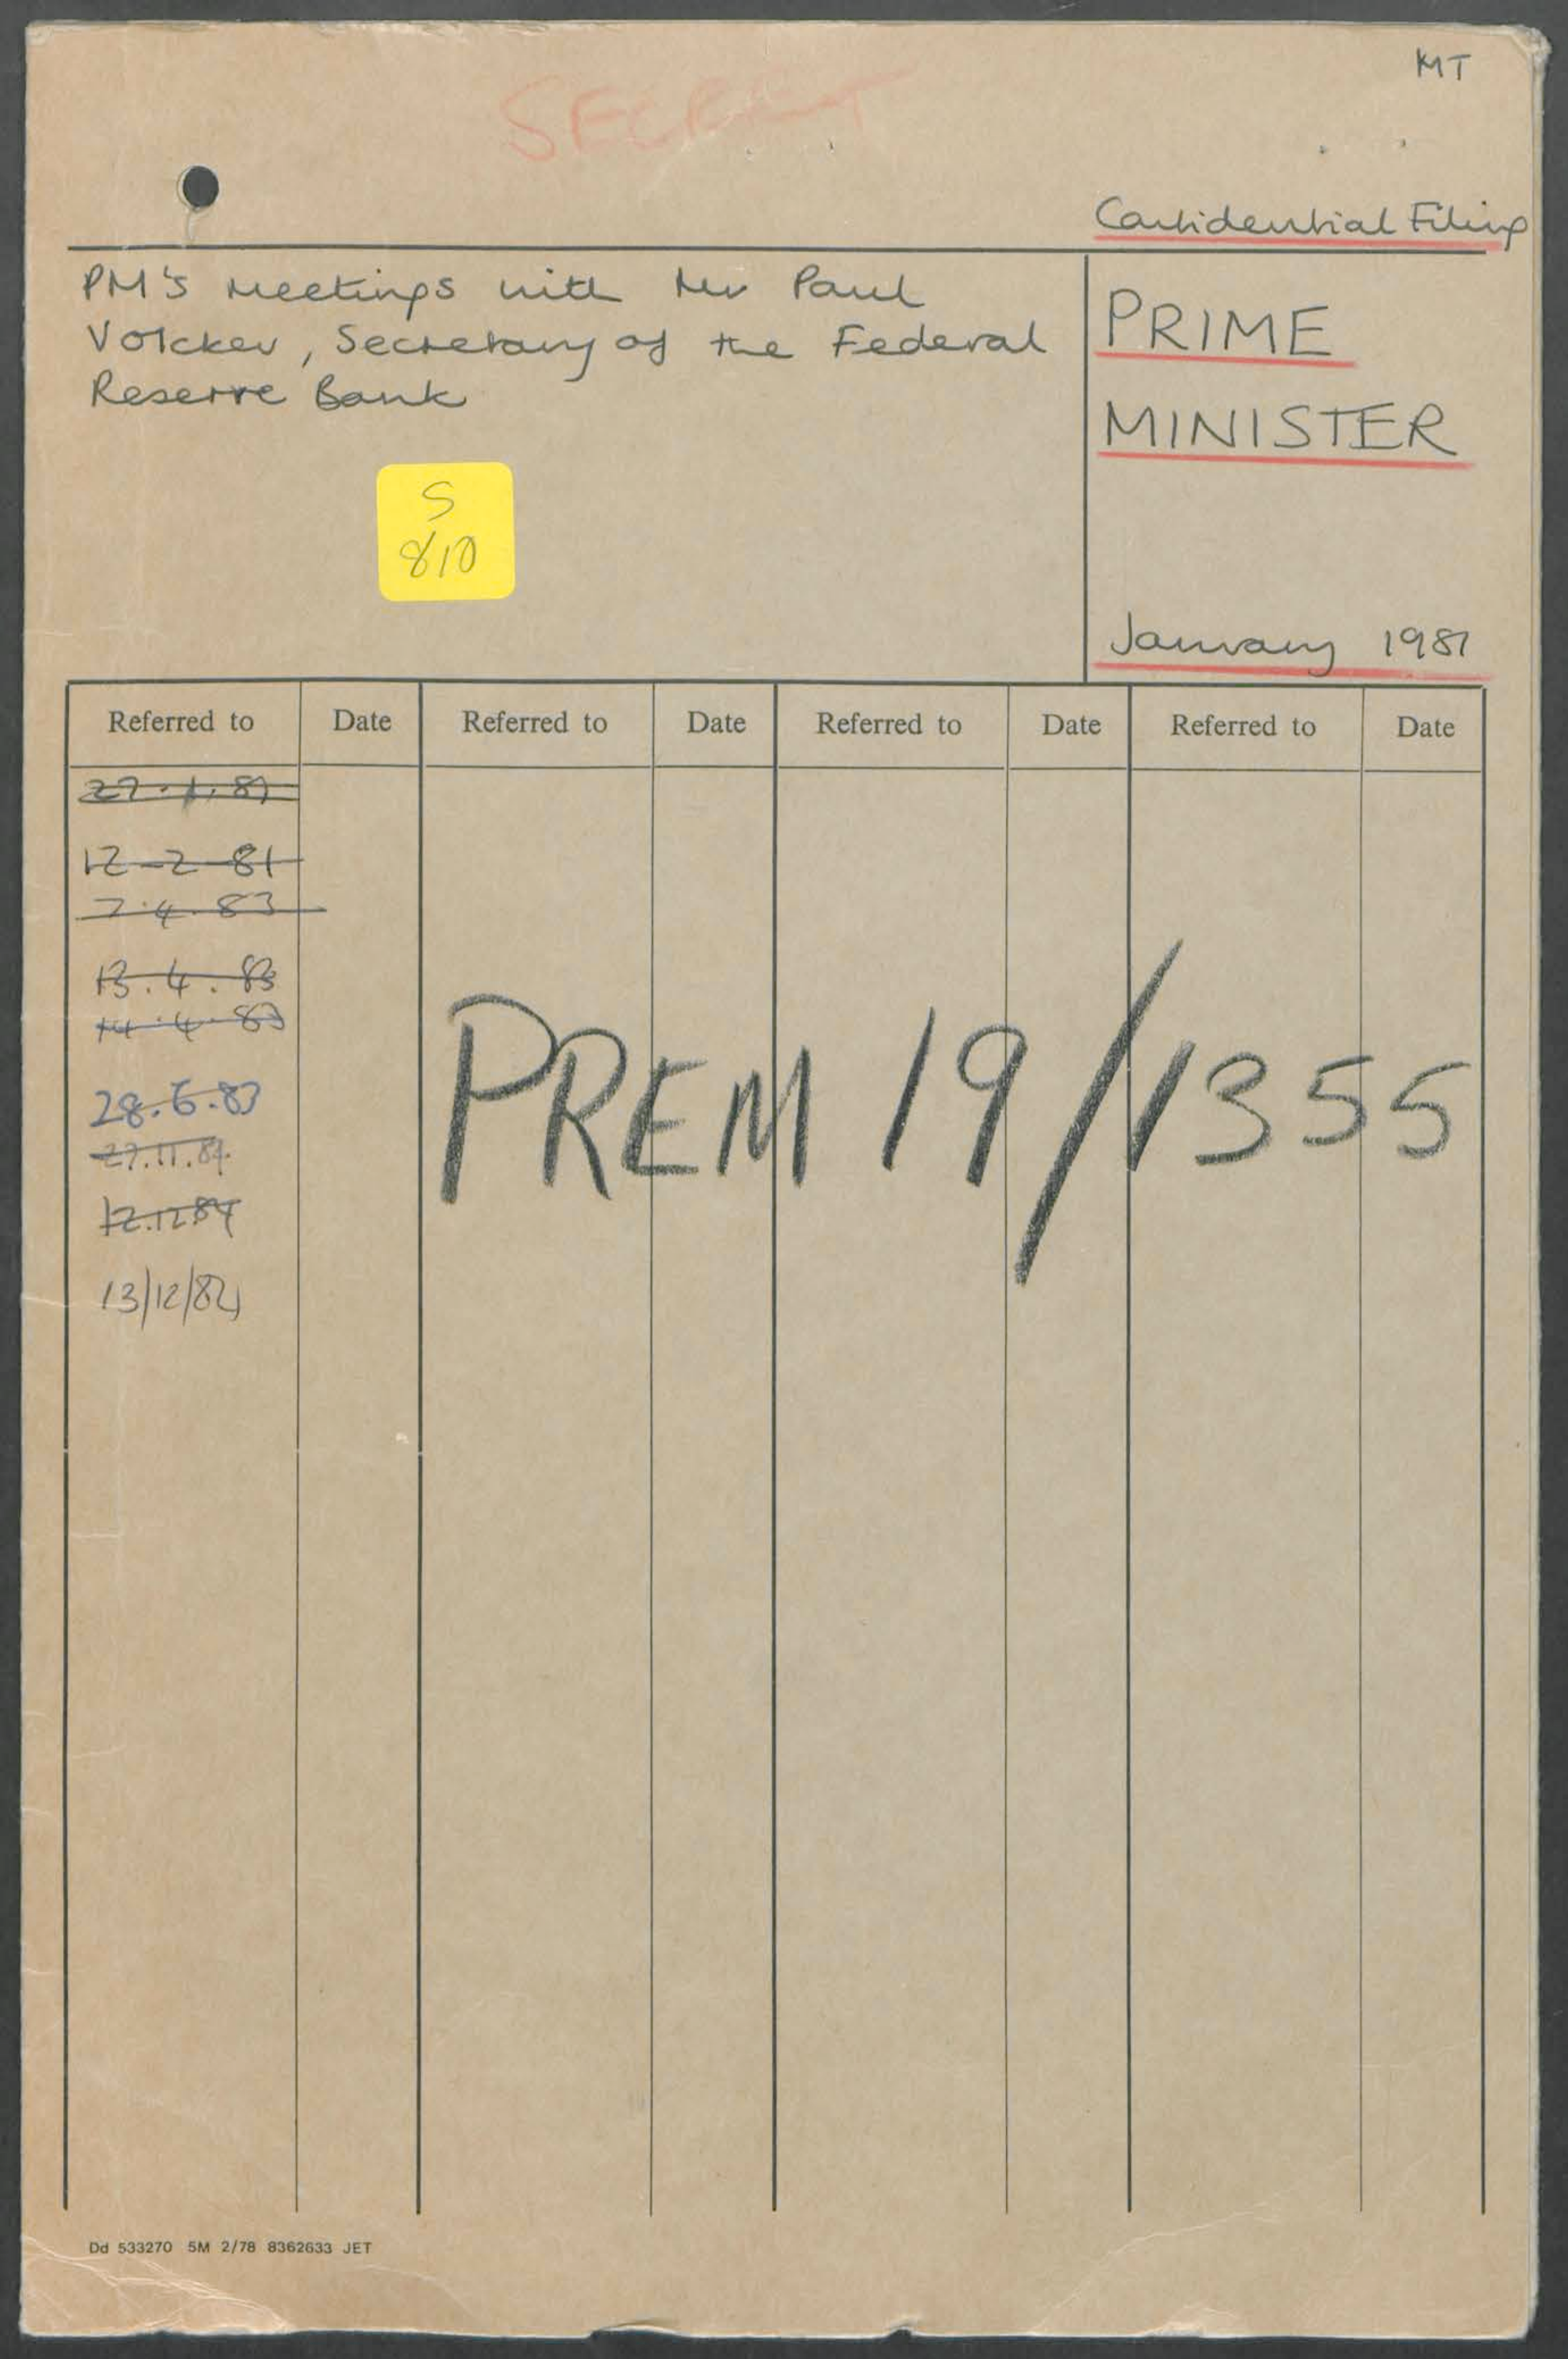 MT
SECRET
Confidential Filing
PM's meetings with Mr Paul
Volcker, Secretary of the Federal
Reserve Bank
PRIME
MINISTER
S
810
January 1981
Referred to Date Referred to Date Referred to Date Referred to Date
27.1.81
12-2-81
7.4.83
13.4.83
14.4.83
28.6.83
27.11.84
12.12.84
13/12/84
PREM 19/1355
Dd 533270 5M 2/78 8362633 JET